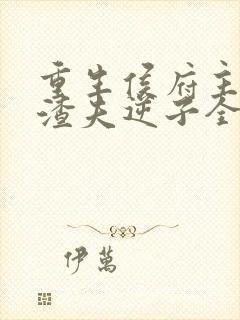 重生侯府主
渣夫逆子全
伊萬